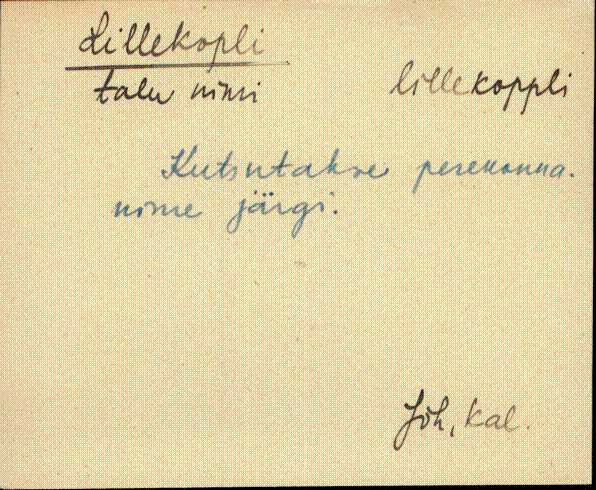 Lillekopli
talu nimi lillekoppli
Kutsutakse perekonna-
nime järgi.
Jõh, kal.